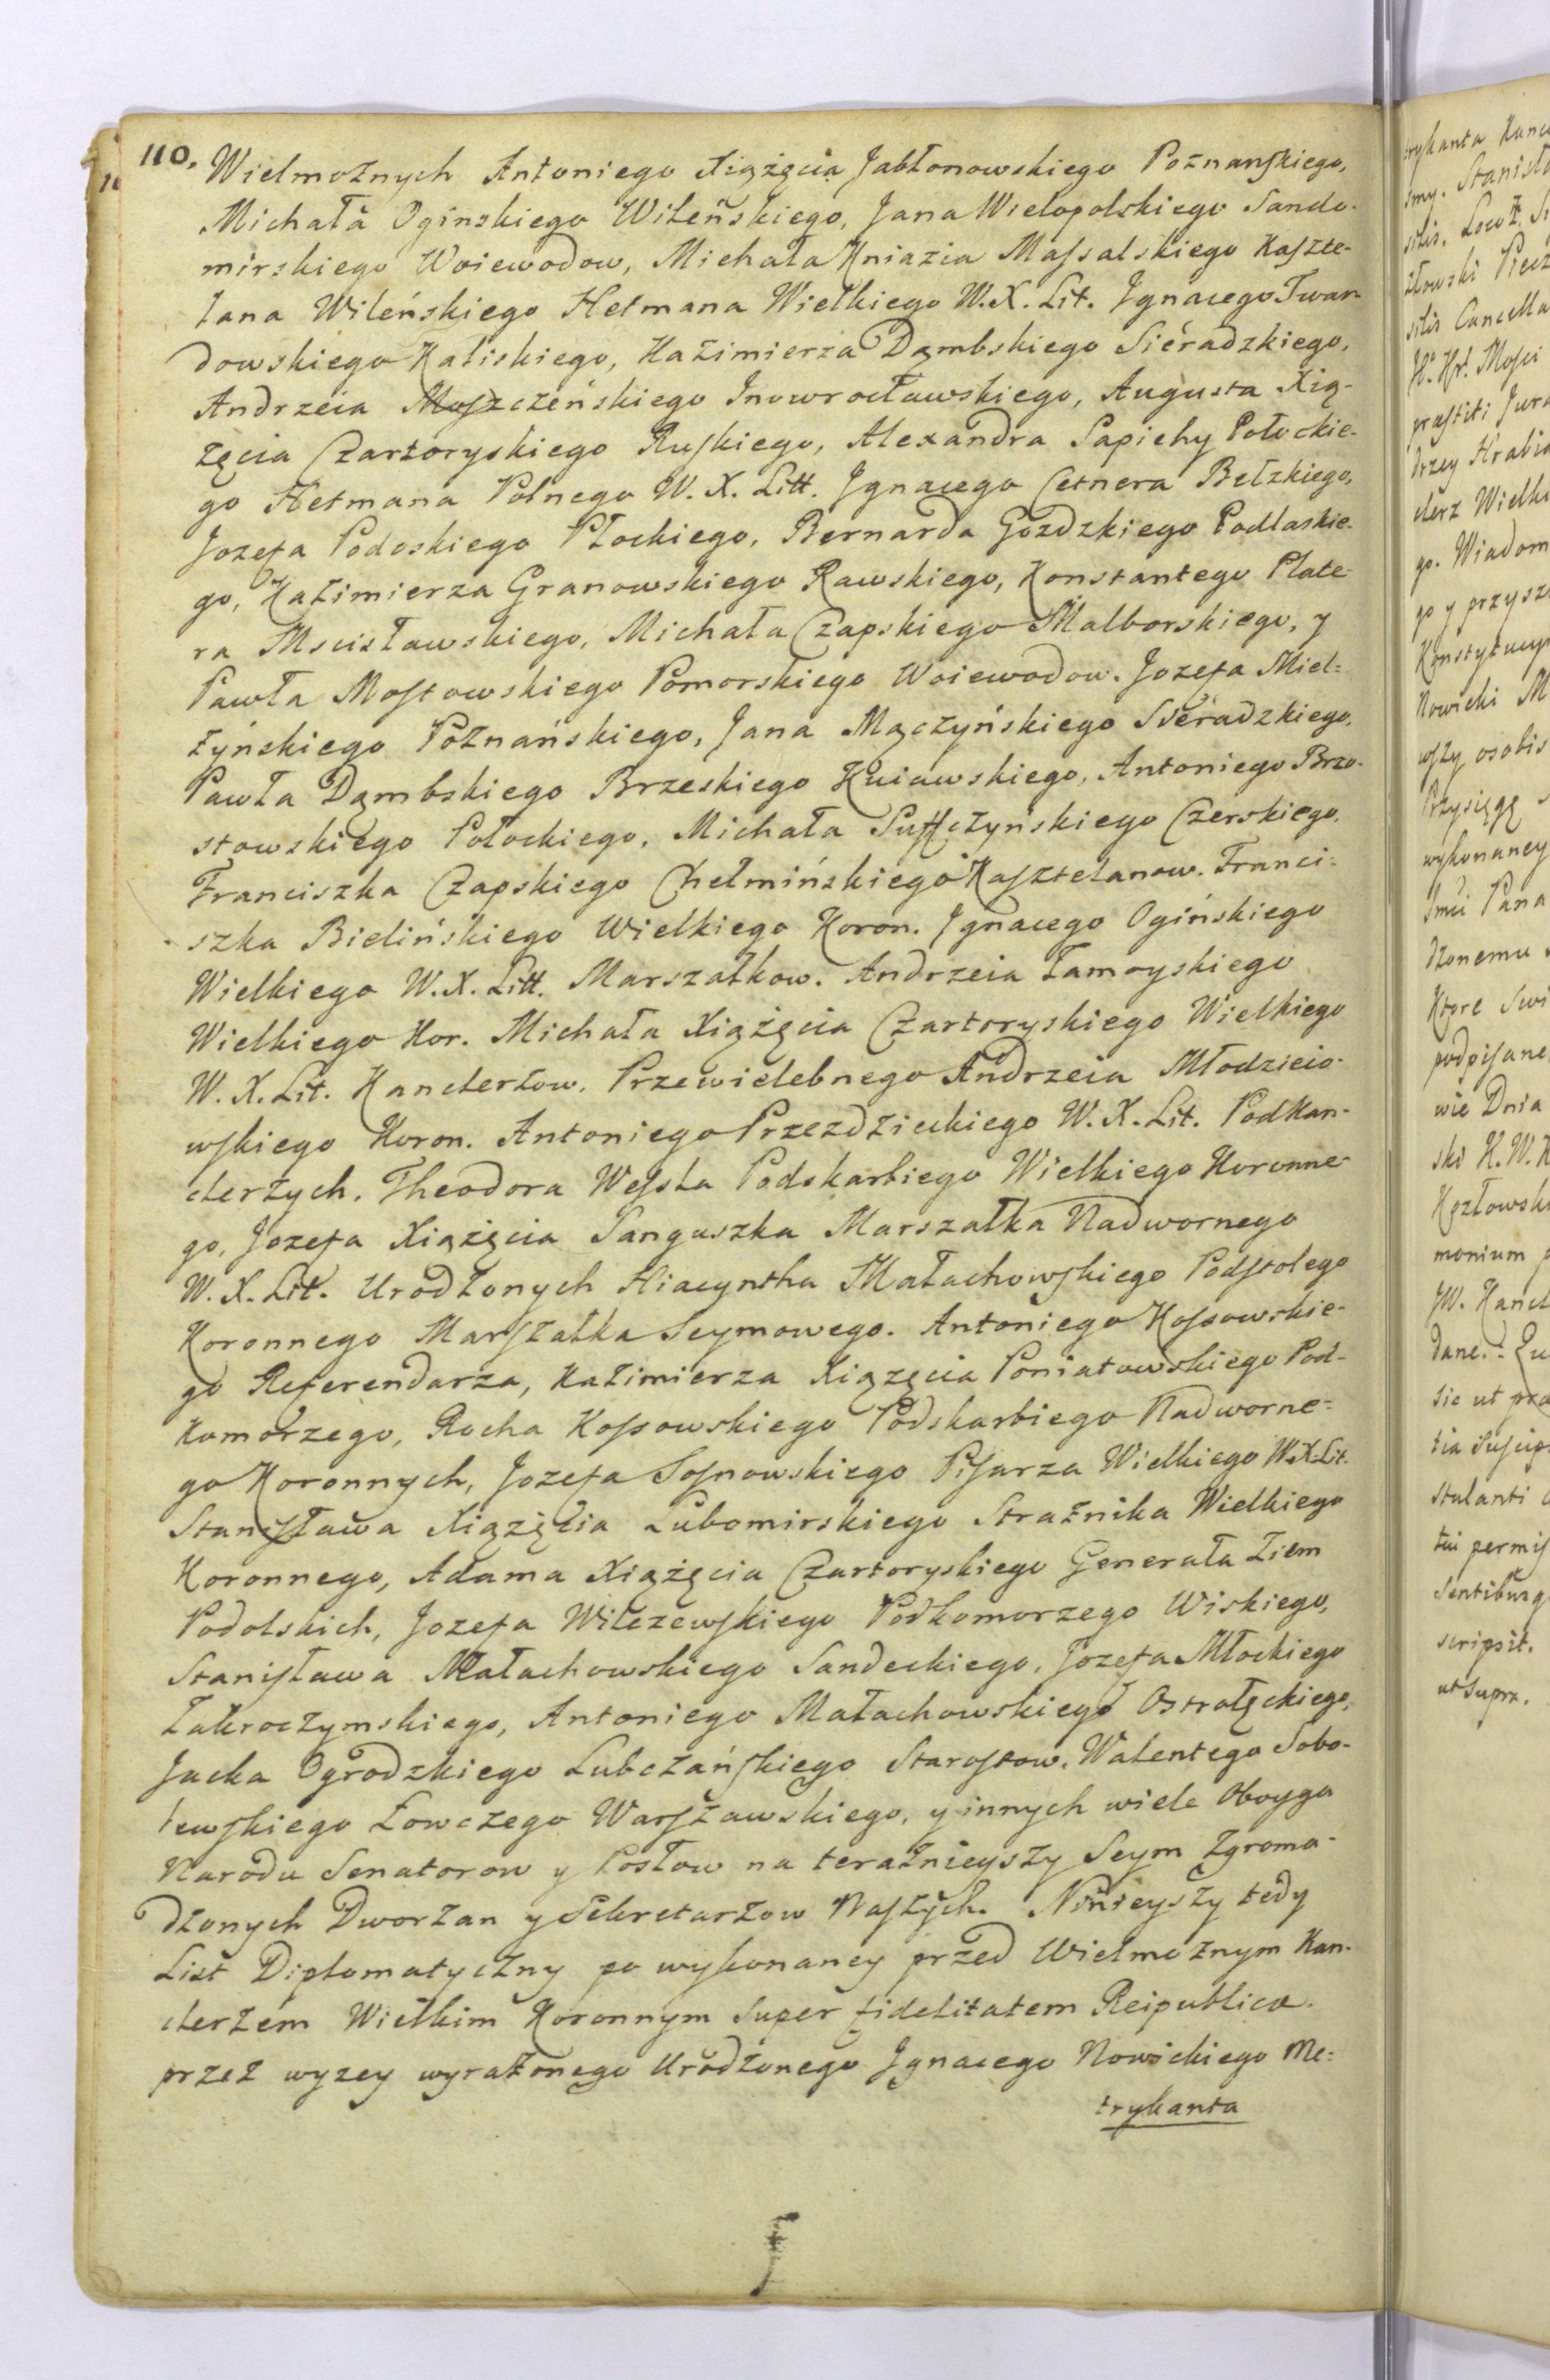 110.
Wielmożnych Antoniego Xiążęcia Jabłonowskiego Poznanſkiego,
Michała Oginskiego Wileńskiego, Jana Wielopolskiego Sando-
mirskiego Woiewodow, Michała Kniazia Maſsalskiego Kaſzte-
lana Wileńskiego Hetmana Wielkiego W.X. Lit. Jgnacego Twar-
dowskiego Kaliskiego, Kazimierza Dąmbskiego Sieradzkiego,
Andrzeia Moſzczeńskiego Inowrocławskiego, Augusta Xią-
żęcia Czartoryskiego Ruſkiego, Alexandra Sapiehy Połockie-
go Hetmana Polnego W. X. Litt. Jgnacego Cetnera Bełzkiego,
Jozefa Podoskiego Płockiego, Bernarda Gozdzkiego Podlaskie-
go, Kazimierza Granowskiego Rawskiego, Konstantego Plate-
ra Mscisławskiego, Michała Czapskiego Malborskiego, y
Pawła Moſtowskiego Pomorskiego Woiewodow. Jozefa Miel=
żyńskiego Poznańskiego, Jana Mączyńskiego Sieradzkiego,
Pawła Dąmbskiego Brzeskiego Kuiawskiego, Antoniego Brzo-
stowskiego Połockiego, Michała Suffczyńskiego Czerskiego,
Franciszka Czapskiego Chełmińskiego Kaſztelanow. Franci=
szka Bielińskiego Wielkiego Koron. Jgnacego Ogińskiego
Wielkiego W.X. Litt. Marszałkow. Andrzeia Zamoyskiego
Wielkiego Kor. Michała Xiążęcia Czartoryskiego Wielkiego
W. X. Lit. Kanclerzow. Przewielebnego Andrzeia Młodzieio-
wſkiego Koron. Antoniego Przezdzieckiego W.X. Lit. PodKan-
clerzych. Theodora Weſsla Podskarbiego Wielkiego Koronne-
go, Jozefa Xiążęcia Sanguszka Marszałka Nadwornego
W. X. Lit. Urodzonych Hiacyntha Małachowſkiego Podſtolego
Koronnego Marſzałka Seymowego. Antoniego Koſsowskie-
go Referendarza, Kazimierza Xiążęcia Poniatowskiego Pod-
komorzego, Rocha Koſsowskiego Podskarbiego Nadworne=
go Koronnych, Jozefa Soſnowskiego Piſarza Wielkiego W.X. Lit.
Staniſława Xiążęcia Lubomirskiego Strażnika Wielkiego
Koronnego, Adama Xiążęcia Czartoryskiego Generała Ziem
Podolskich, Jozefa Wilczewſkiego Podkomorzego Wiskiego,
Staniſława Małachowskiego Sandeckiego, Jozefa Młockiego
Zakroczymskiego, Antoniego Małachowskiego Ostrołęckiego,
Jacka Ogrodzkiego Lubczańſkiego Staroſtow. Walentego Sobo-
lewſkiego Łowczego Warſzawskiego, y innych wiele Oboyga
Narodu Senatorow y Posłow na teraznieyſzy Seym Zgroma-
dzonych Dworzan y Sekretarzow Naſzych. Ninieyszy tedy
List Diplomatyczny po wykonaney przed Wielmożnym Kan-
clerzem Wielkim Koronnym Super fidelitatem Reipublicæ
przez wyzey wyrażonego Urodzonego Jgnacego Nowickiego Me=
trykanta